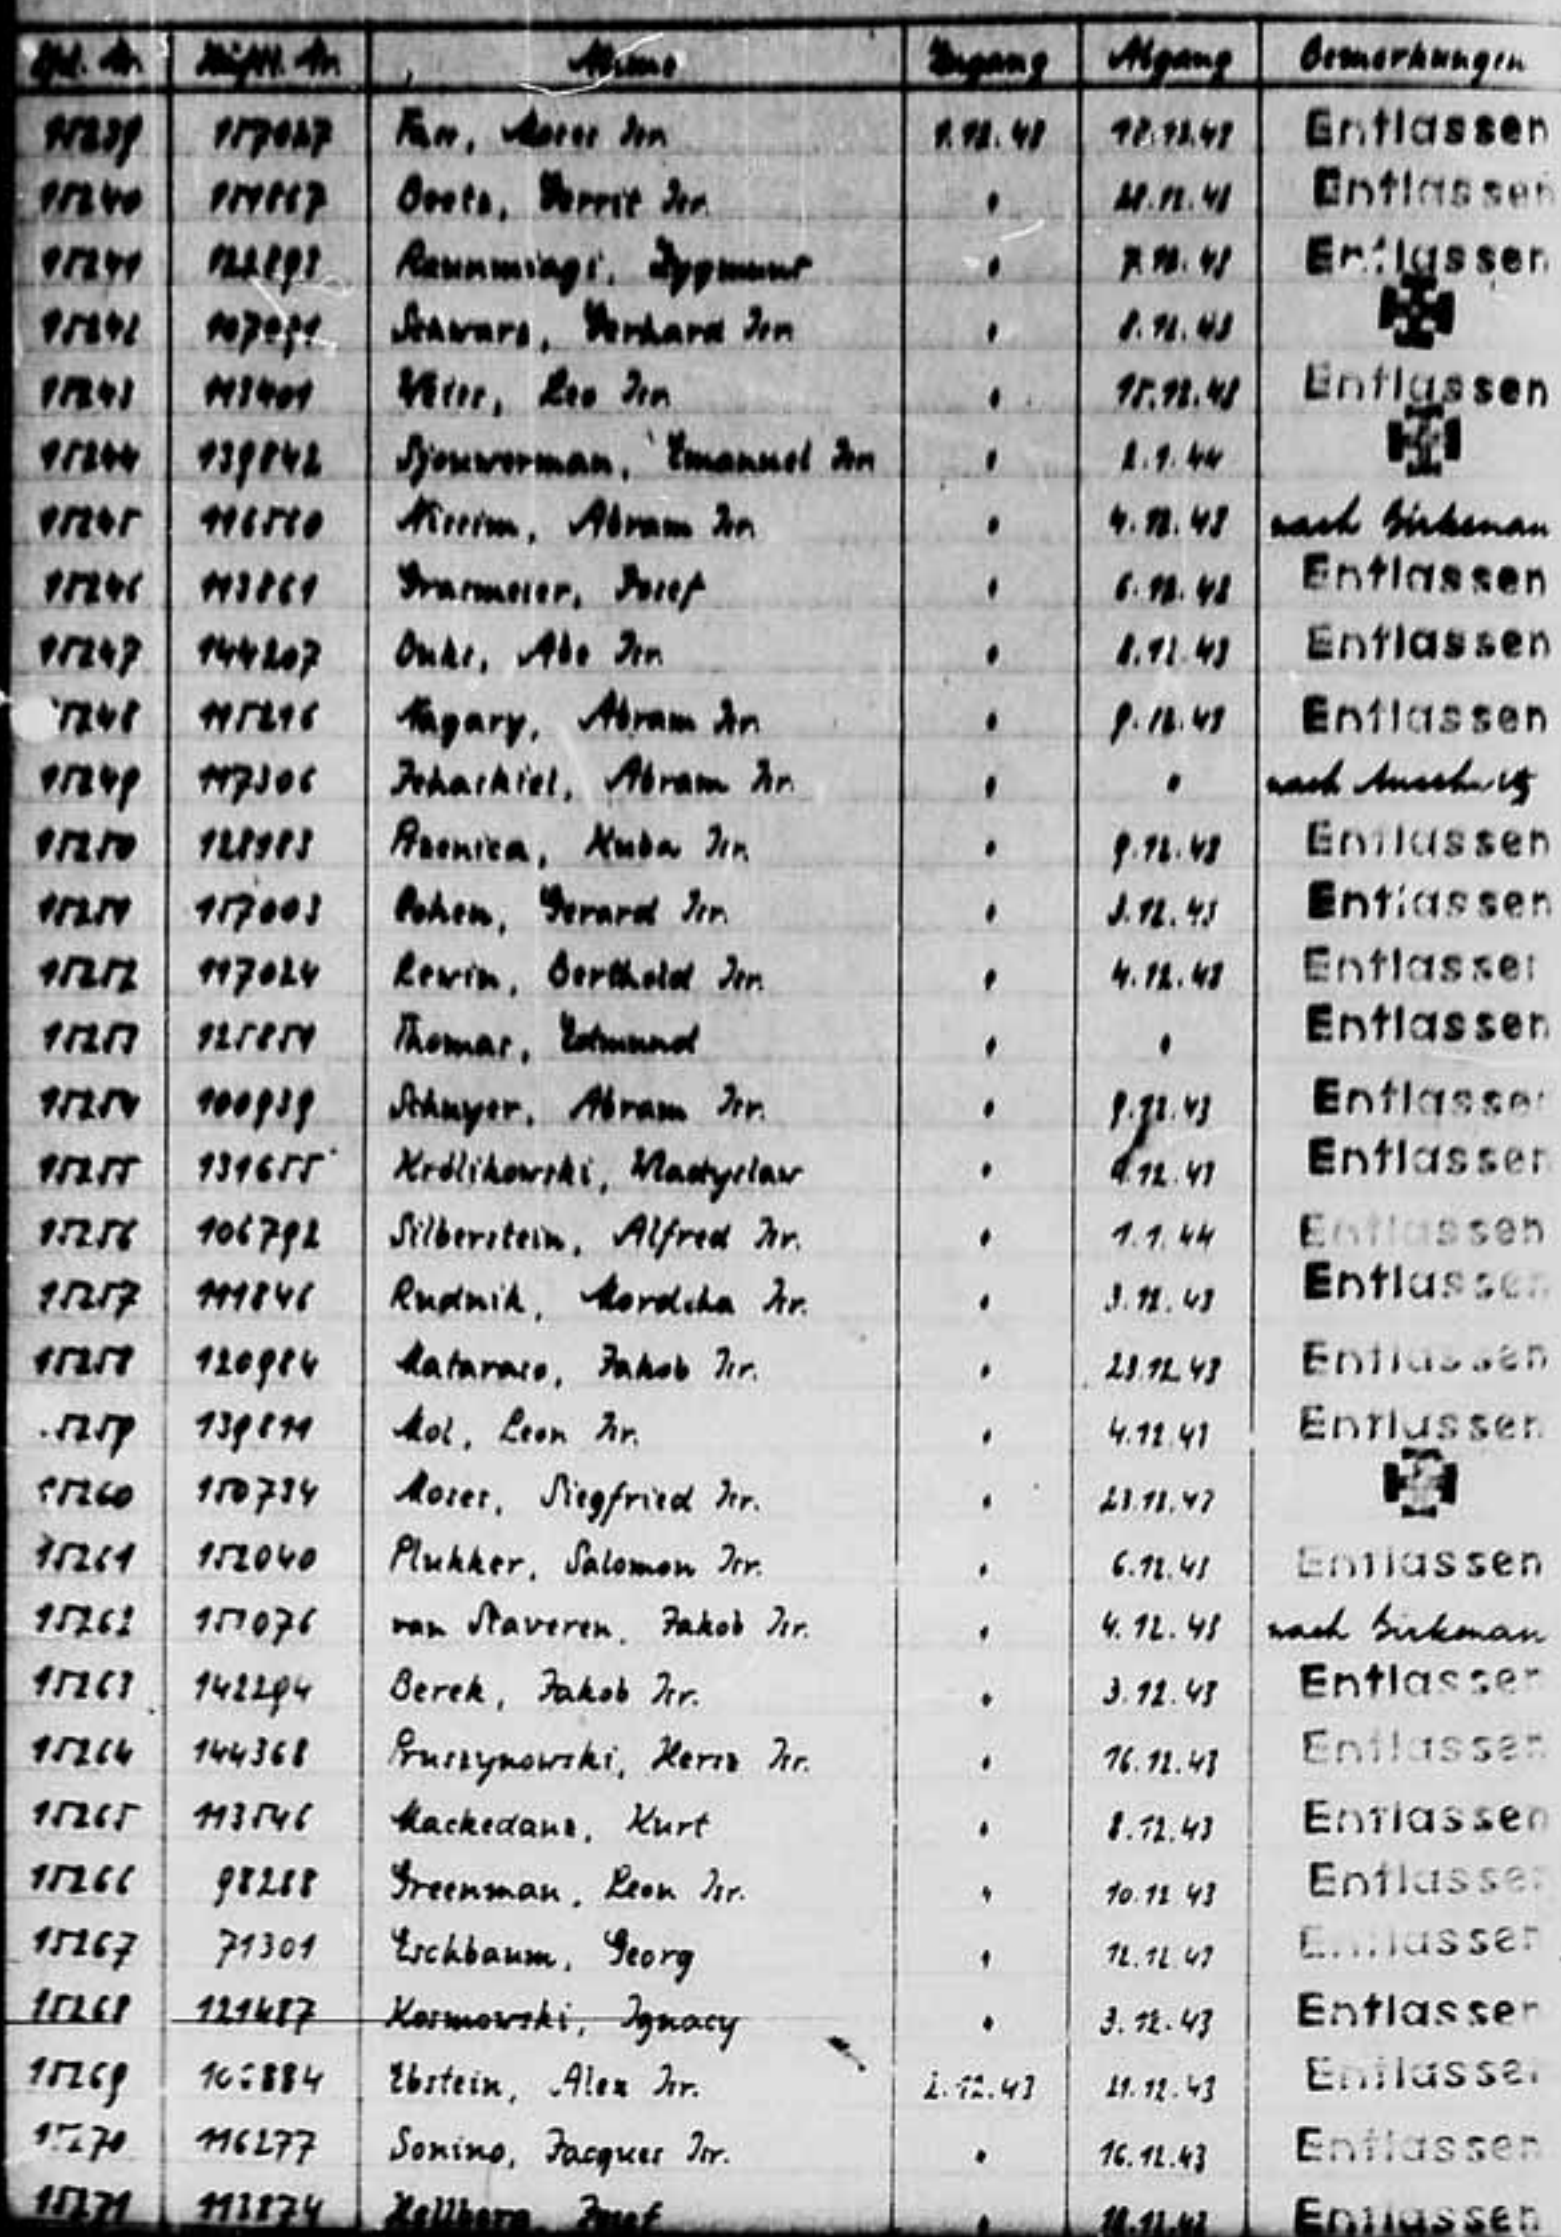 Lfd. Nr. Häftl. Nr. Name Zugang Abgang Bemerkungen
15239 157027 Moses Isr. 1.12.43 Entlassen
15240 Gerrit Isr. " Entlassen
15241 Zygmunt " 7.12.43 Entlassen
15242 Schwarz, Gerhard Isr. " 8.12.43
15243 113401 Leo Isr. " 15.12.43 Entlassen
15244 139842 Sjouwerman, Emanuel Isr. " 2.1.44
15245 116560 Nissim, Abram Isr. " 4.12.43 nach Birkenau
15246 113861 Grasmeier, Josef " 6.12.43 Entlassen
15247 144207 Abo Isr. " 8.12.43 Entlassen
15248 115216 Abram Isr. " 9.12.43 Entlassen
15249 117306 Abram Isr. " " nach Auschwitz
15250 128983 Kuba Isr. " 9.12.43 Entlassen
15251 157003 Cohen, Gerard Isr. " 3.12.43 Entlassen
15252 117024 Lewin, Berthold Isr. " 4.12.43 Entlassen
15253 125851 Thomas, Edmund " " Entlassen
15254 100939 Schuyer, Abram Isr. " 9.12.43 Entlassen
15255 131655 Królikowski, Wladyslaw " 9.12.43 Entlassen
15256 106792 Silberstein, Alfred Isr. " 1.1.44 Entlassen
15257 111846 Rudnik, Mordcha Isr. " 3.12.43 Entlassen
15258 120984 Mataraso, Jakob Isr. " 23.12.43 Entlassen
15259 139811 Mol, Leon Isr. " 4.12.43 Entlassen
15260 150734 Moses, Siegfried Isr. " 23.12.43
15261 152040 Plukker, Salomon Isr. " 6.12.43 Entlassen
15262 151076 van Staveren, Jakob Isr. " 4.12.43 nach Birkenau
15263 142294 Berek, Jakob Isr. " 3.12.43 Entlassen
15264 144368 Pruszynowski, Hersz Isr. " 16.12.43 Entlassen
15265 113546 Mackedanz, Kurt " 8.12.43 Entlassen
15266 98288 Greenman, Leon Isr. " 10.12.43 Entlassen
15267 71301 Eschbaum, Georg " 12.12.43 Entlassen
15268 121487 Kosmowski, Ignacy " 3.12.43 Entlassen
15269 Ebstein, Alex Isr. 2.12.43 21.12.43 Entlassen
15270 116277 Sonino, Jacques Isr. " 16.12.43 Entlassen
15271 113874 Josef " Entlassen